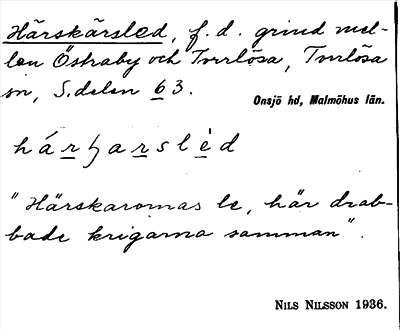 Härskärsled, f.d. grind mel-
lan Östraby och Tvrrlösa, Tvrrlösa
sn, S.delen 63.
Onsjö hd, Malmöhus län.
hárʃarslèd
"Härskarornas le, här drab-
bade krigarna samman".
NILS NILSSON 1936.